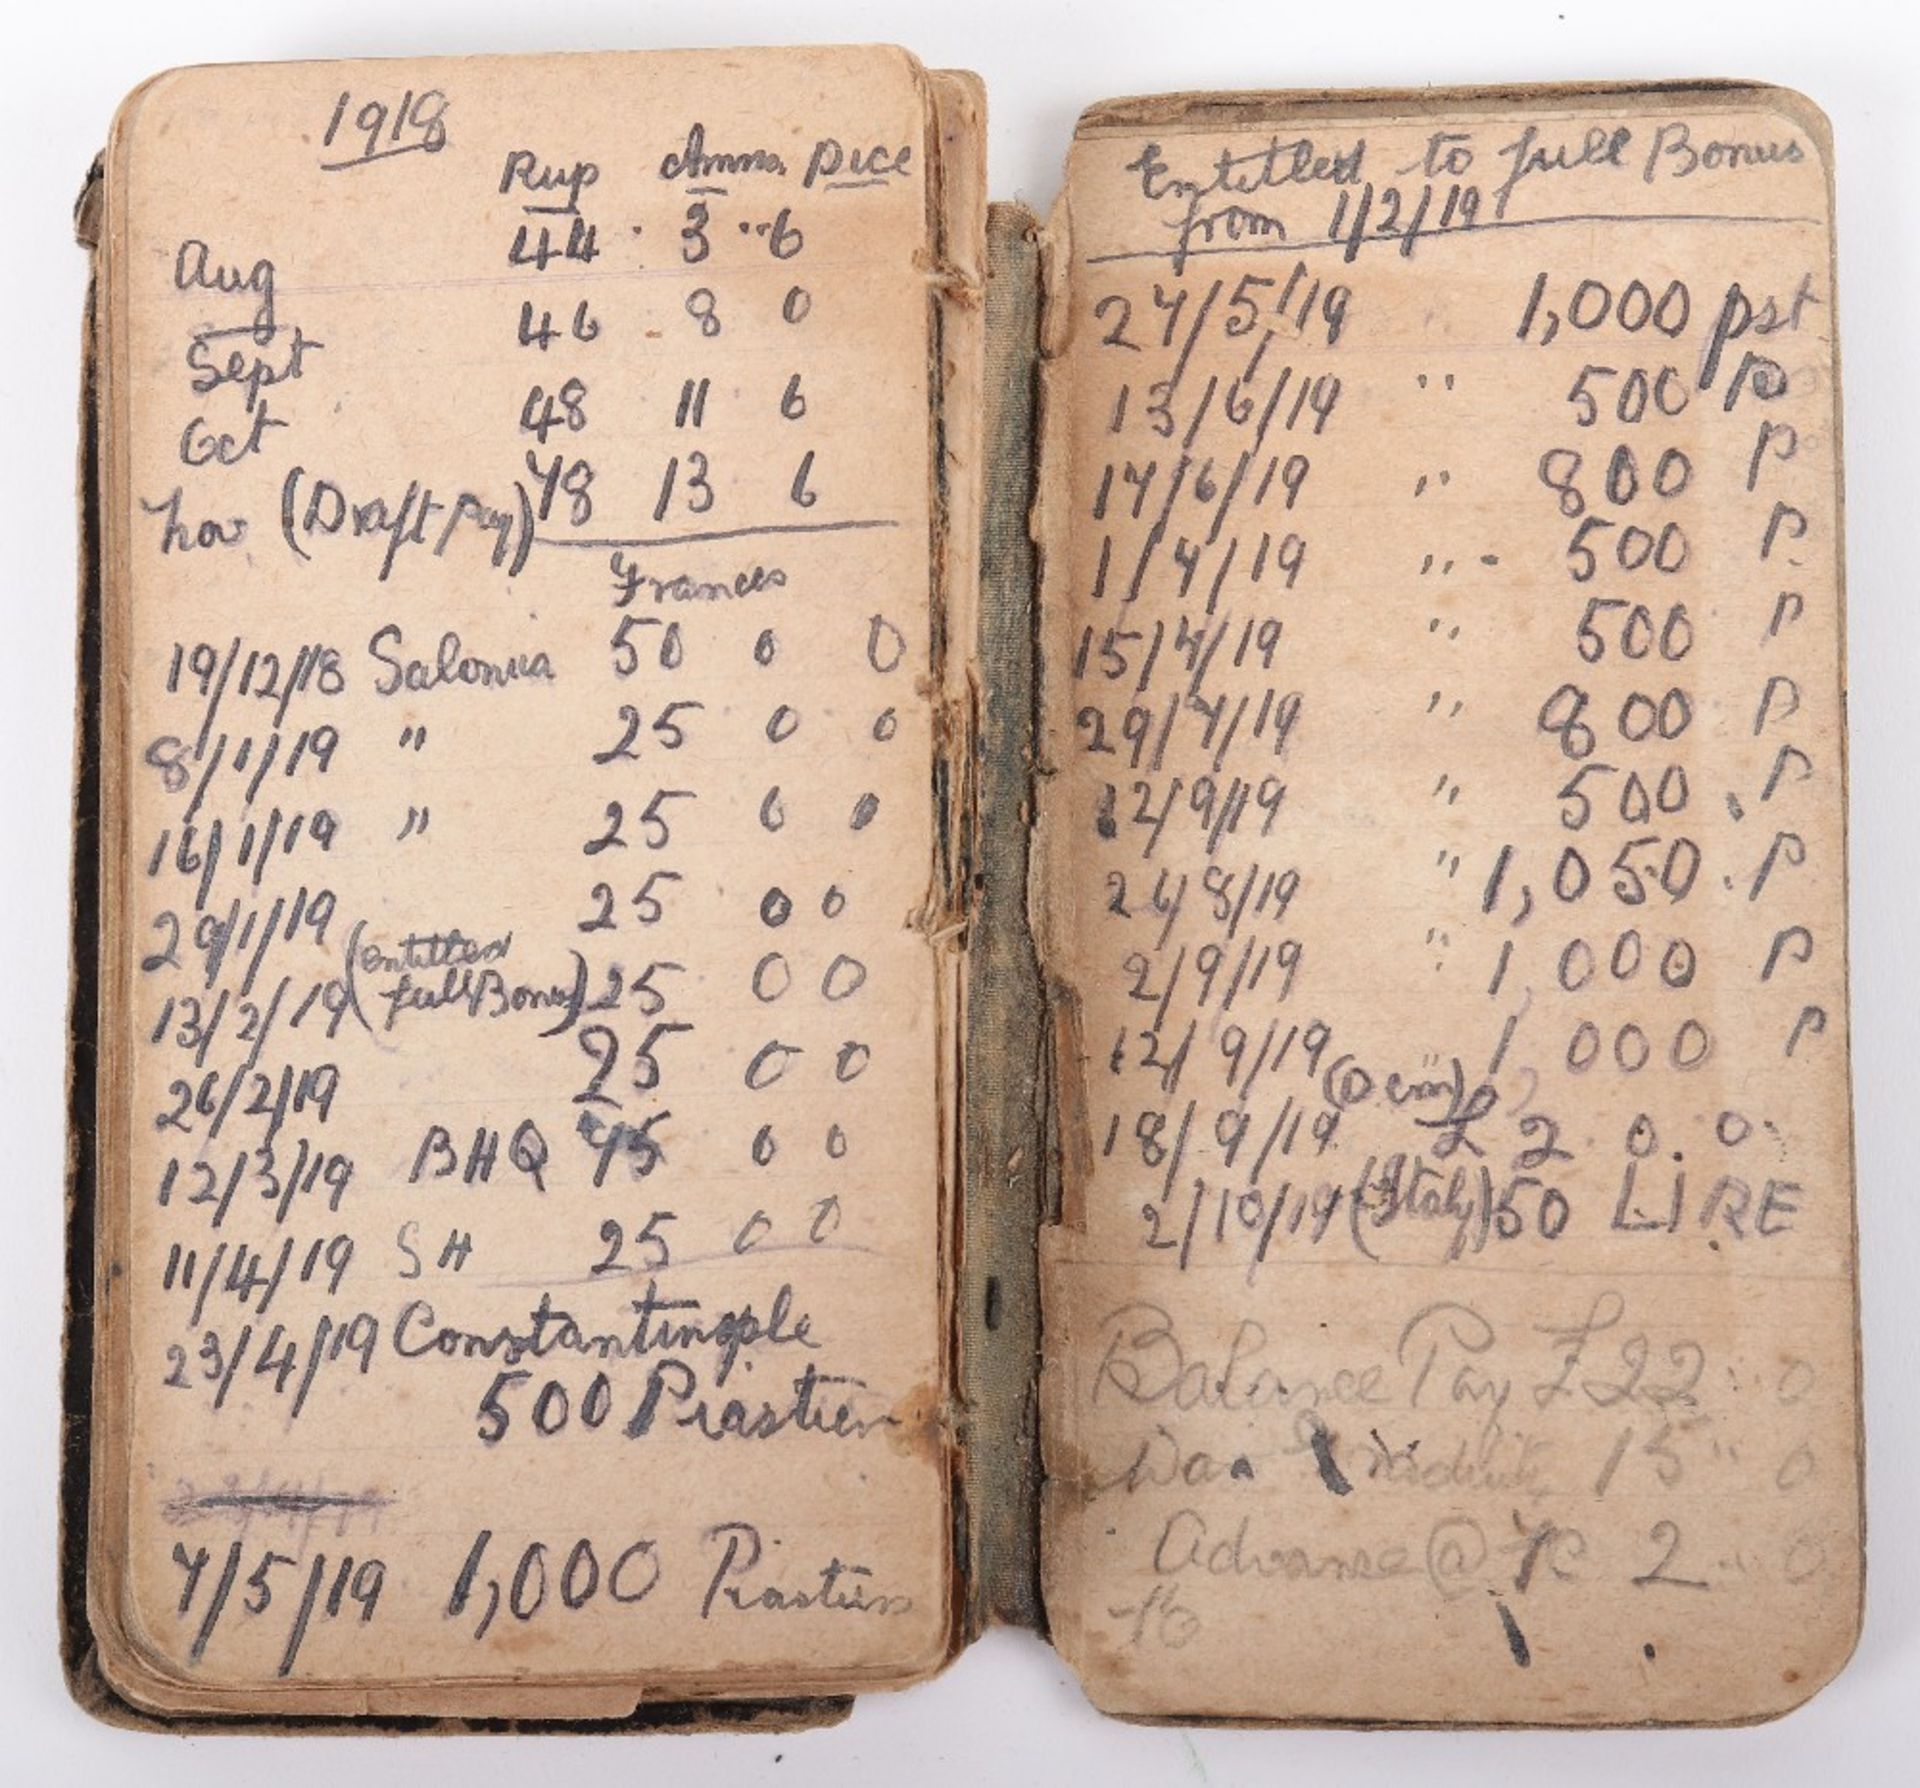 1918
Rup Anna Pice
Aug 44 3 6
Sept 46 8 0
Oct 48 11 6
Nov (Draft Pay) 78 13 6
Francs
19/12/18 Salonica 50 0 0
8/1/19 " 25 0 0
16/1/19 " 25 0 0
29/1/19 25 0 0
13/2/19 (entitled full Bonus) 25 0 0
26/2/19 25 0 0
12/3/19 BHQ 75 0 0
11/4/19 SH 25 0 0
23/4/19 Constantinople
500 Piastien
7/5/19 1,000 Piastien
Entitled to full Bonus
from 1/2/19
27/5/19 " 1,000 pst
13/6/19 " 500 P
17/6/19 " 800 P
1/7/19 " 500 P
15/7/19 " 500 P
29/7/19 " 800 P
12/9/19 " 500 P
26/8/19 " 1,050 P
2/9/19 " 1,000 P
12/9/19 " 1,000 P
18/9/19 £2 0. 0.
2/10/19 (Italy) 50 LIRE
Balance Pay £22 " 0
War 15 " 0
Advance @ 2 " 0